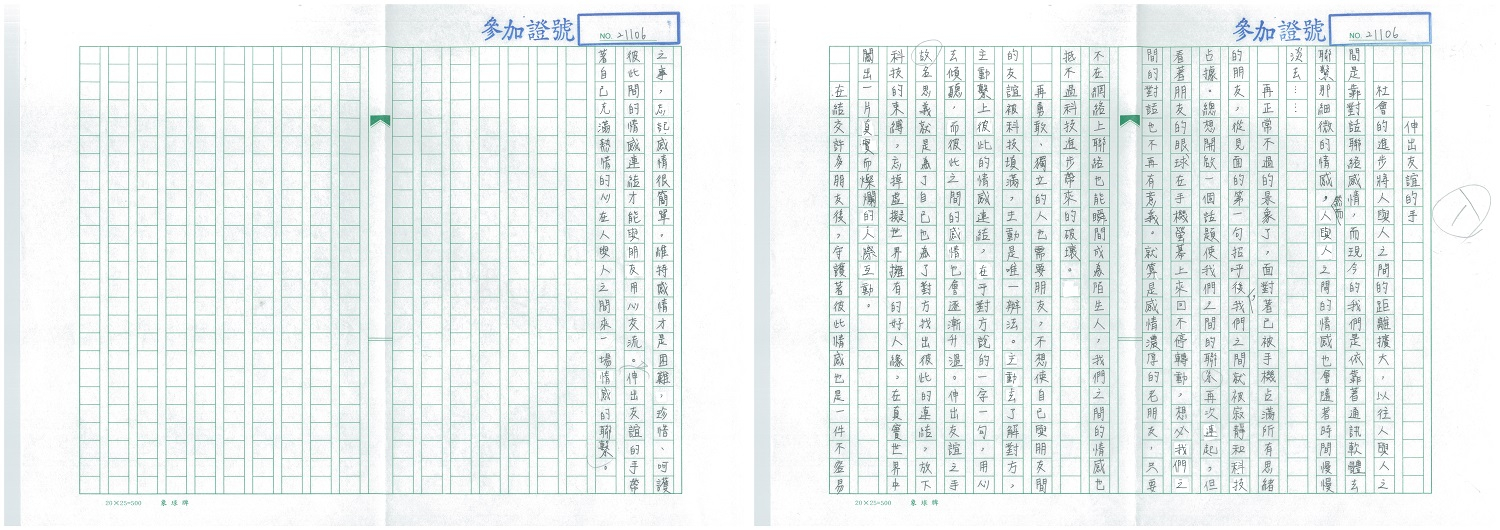 參加證號
NO. 21106
伸出友誼的手
社會的進步將人與人之間的距離擴大，以往人與人之
間是靠對話聯絡感情，而現今的我們是依靠著通訊軟體去
聯繫那細微的情感，然而人與人之間的情感也會隨著時間慢慢
淡去……
再正常不過的景象了，面對著已被手機占滿所有思緒
的朋友，從見面的第一句招呼後我們之間就被寂靜和科技
占據。總想開啟一個話題使我們之間的聯系再次連起，但
看著朋友的眼球在手機螢幕上來回不停轉動，想必我們之
間的對話也不再有意義。就算是感情濃厚的老朋友，只要
不在網絡上聯絡也能瞬間成為陌生人，我們之間的情感也
抵不過科技進步帶來的破壞。
再勇敢、獨立的人也需要朋友，不想使自己與朋友間
的友誼被科技填滿，主動是唯一辦法。主動去了解對方，
主動繫上彼此的情感連結，在乎對方說的一字一句，用心
去傾聽，而彼此之間的感情也會逐漸升溫。伸出友誼之手
故名思義就是為了自己也為了對方找出彼此的連結，放下
科技的束縛，忘掉虛擬世界擁有的好人緣，在真實世界中
闖出一片真實而燦爛的人際互動。
在結交許多朋友後，守護著彼此情感也是一件不容易
參加證號
NO. 21106
之事，忘記感情很簡單，維持感情才是困難，珍惜、呵護
彼此間的情感連結才能與朋友用心交流。伸出友誼的手帶
著自己充滿熱情的心在人與人之間來一場情感的聯繫。
20×25=500 象球牌
20×25=500 象球牌